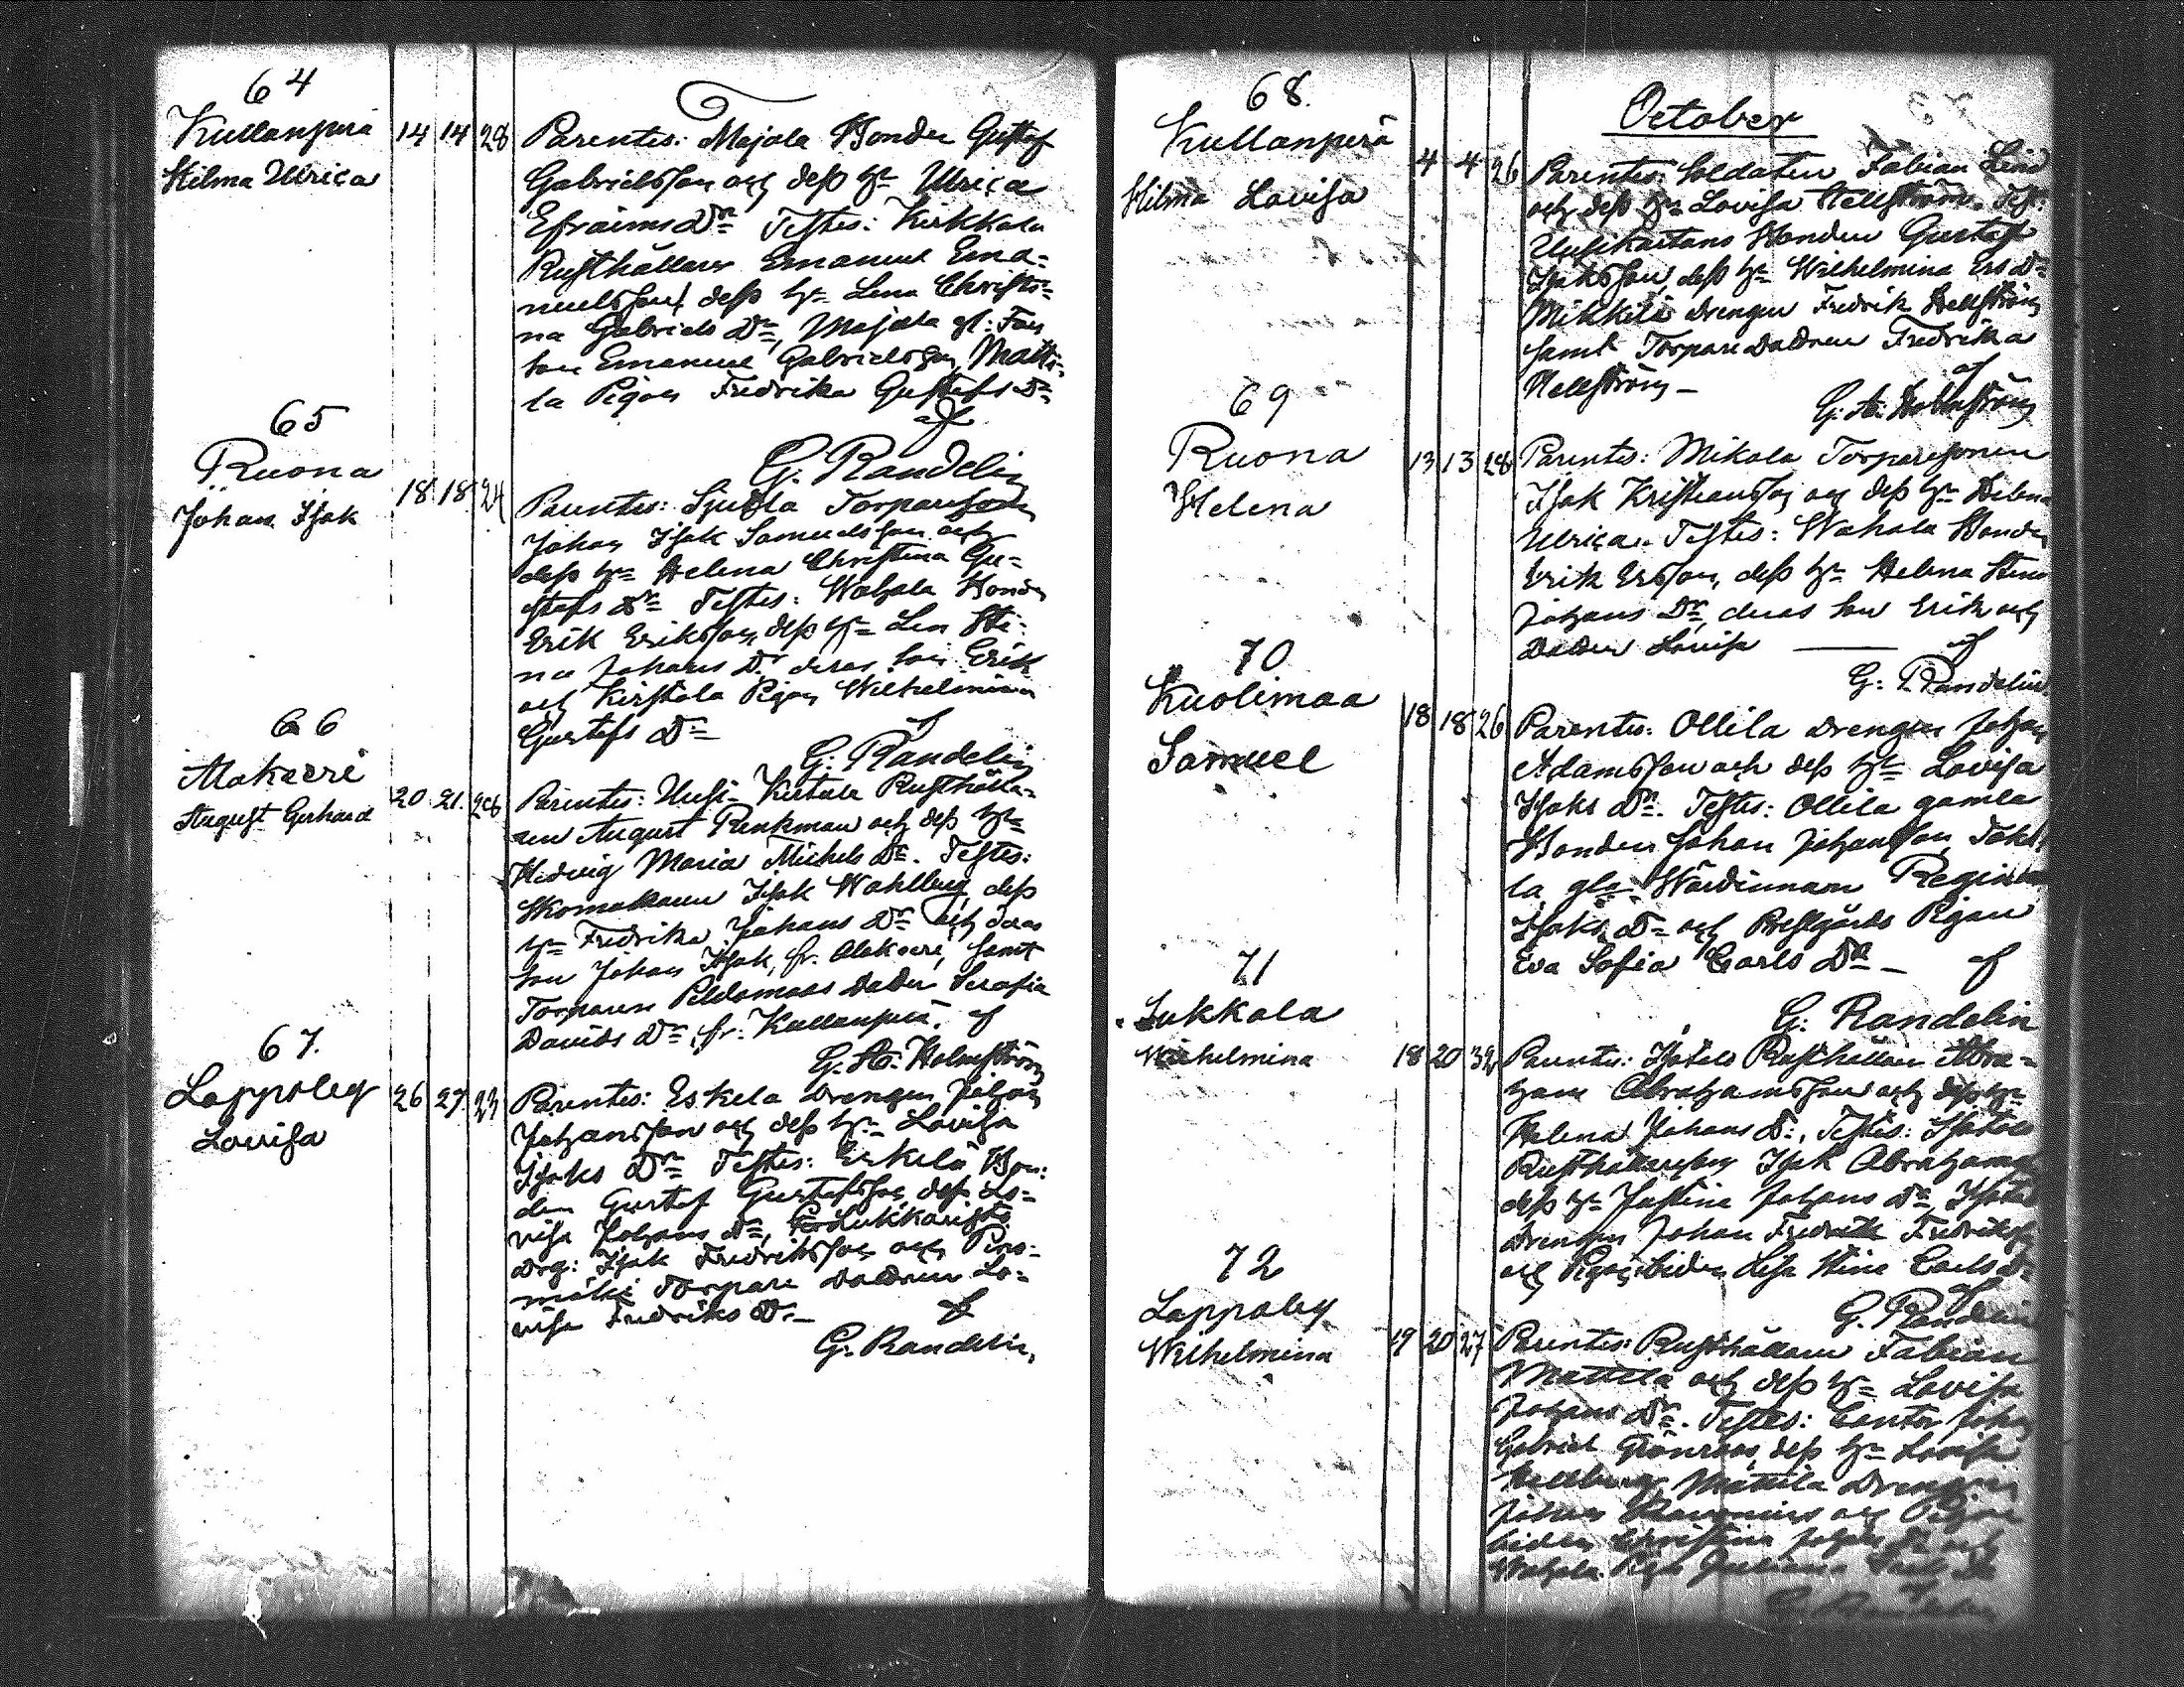 64
Kullanperä
Hilma Ulrica
14 14 28
Parentes: Majala Bonden Gustaf
Gabrielsson och dess h: Ulrica
Efraims Dr Testes: Kirkkala
Rusthållaren Emanuel Ema-
nuelsson, dess h: Lena Christi-
na Gabriels Dr, Majala gl: Far
Emanuel Gabrielsson, Matti-
la Pigan Fredrika Gustafs Dr
af
G. Randelin
65
Ruona
Johan Isak
18 18 24
Parentes: Torpareson
Johan Isak Samuelsson och
dess h: Helena Christina Gu-
stafs Dr Testes: Wahala Bonden
Erik Eriksson, dess h: Lena Sti-
na Johans Dr deras son Erik
och Kirstola Pigan Wilhelmina
Gustafs Dr af
G. Randelin
66
Alakaeri
August Gerhard
20 21 26
Parentes: Uusi-Kertula Rusthålla-
ren August Renkman och dess h:
Hedvig Maria Michels Dr. Testes:
Skomakaren Isak Wahlberg, dess
h: Fredrika Johans Dr och deras
son Johan Isak, fr. Alakaeri, samt
Torparen Peldomaas Dotter Serafia
Davids Dr, fr: Kullanperä. af
G. A. Holmström
67.
Lappoby
Lovisa
26 27 23
Parentes: Eskela Drengen Johan
Johansson och dess h: Lovisa
Isaks Dr Testes: Erkela Bon-
den Gustaf Gustafsson, dess Lo-
visa Johans Dr,
Drg: Isak Fredriksson och
mäki Torpare Dottren Lo-
visa Fredriks D:
af
G. Randelin,
68.
Kullanperä
Hilma Lovisa
October
4 4 26
Parentes: Soldaten Fabian Lind
och dess h: Lovisa Hellström. Test:
Uusikartano Bonden Gustaf
Isaksson, dess h: Wilhelmina Ers Dr
Mikkilä Drengen Fredrik Hellström
samt Torpare Dottren Fredrika
Hellström — af
G. A. Holmström
69
Ruona
Helena
13 13 28
Parentes: Mikola Torparesonen
Isak Kristiansson och dess h: Helena
Ulrica. Testes: Wahala Bonden
Erik Ersson, dess h: Helena Stina
Johans Dr, deras son Erik och
Dotter Lovisa — af
G. Randelin
70
Kuolimaa
Samuel
18 18 26
Parentes: Ollila Drengen Johan
Adamsson och dess h: Lovisa
Isaks Dr. Testes: Ollila gamla
Bonden Johan Johansson,
la gla Wärdinnan Regina
Isaks Dr och Prestgårds Pigan
Eva Sofia Carls Dr — af
G. Randelin
71
Sukkala
Wilhelmina
18 20 32
Parentes: Isotalo Rusthållaren Abra-
ham Abrahamsson och dess h:
Helena Johans D:, Testes: Isotalo
Rusthållareson Isak Abrahamss
dess h: Justina Johans Dr, Isotalo
Drengen Johan Fredrik Fredriksson
och Pigan ibidem Lisa Stina Carls D:
af
G. Randelin
72
Lappoby
Wilhelmina
19 20 27
Parentes: Rusthållaren Fabian
Mattila och dess h: Lovisa
Johans Dr. Testes: Cantor Johan
Gabriel Grönroos, dess h: Lovisa
Hellberg, Mattila Drengen
Johan och Pigan
ibidem Christina Johans Dr och
Wahala Pigan Juliana
G. Randelin